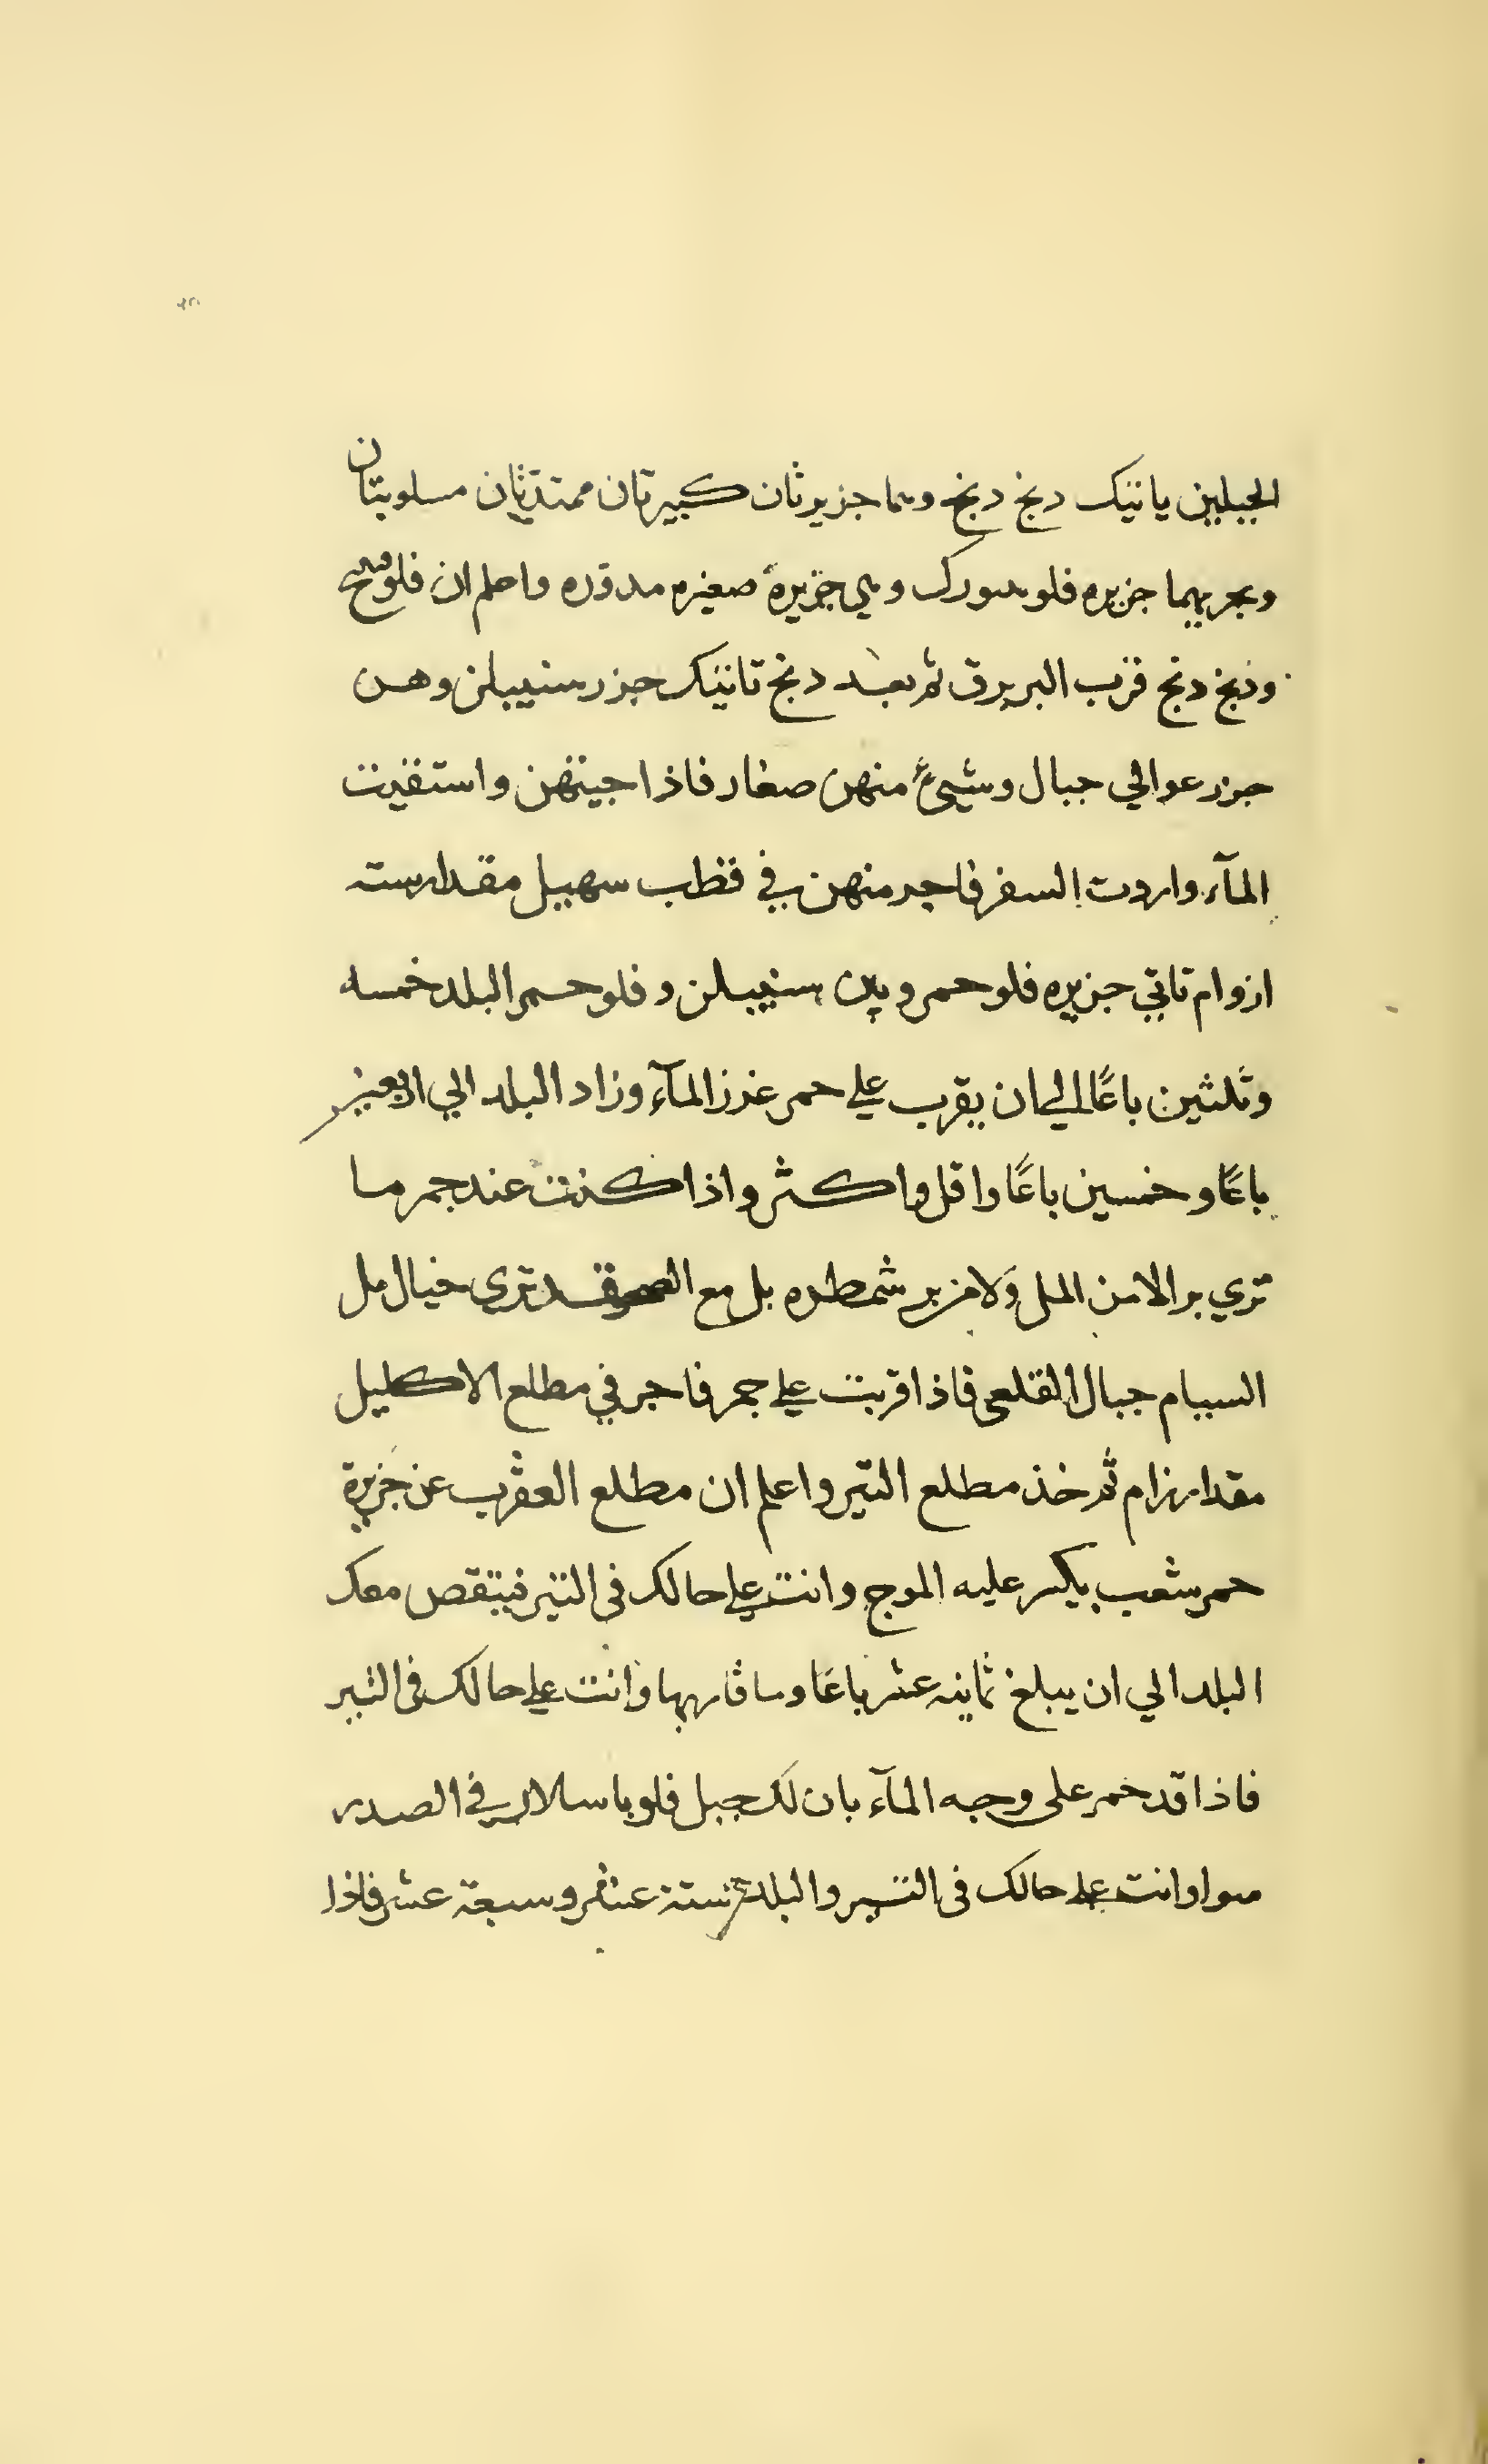 الجبلين ياتيك دنج دنج وهما جزيرتان كبيرتان ممتدتان مسلوبتان
وبحريهما جزيره فلو سورك وهي جزيرة صغيره مدوره واعلم ان
ودنج دنج قرب البر برق ثم بعد دنج تاتيك جزر سنبيلن وهن
جزر عوالي جبال وشيء منهن صغار فاذا جيتهن واستقيت
المآء واردت السفر فاجر منهن في قطب سهيل مقدار سته
ازوام تاتي جزيره فلو جمر وبين سنبيلن وفلو جمر البلد خمسه
وثلثين باعًا الي ان يقرب علي جمر غزر المآء وزاد البلد الي اربعين
باعًا وخمسين باعًا واقل واكثر واذا كنت عند جمر ما
تري بر الا من المل ولا من بر شمطره بل مع الصحو قد تري خيال مل
السيام جبال القلعي فاذا قربت علي جمر فاجر في مطلع الاكليل
مقدار زام ثم خذ مطلع التير واعلم ان مطلع العقرب عن جزيرة
جمر شعب يكسر عليه الموج وانت علي حالك في التير فينقص معك
البلد الي ان يبلغ ثمانيه عشر باعًا وما قاربها وانت علي حالك في التير
فاذا قد جمر على وجه المآء بان لك جبل فلو باسلار في الصدر
سوا وانت علي حالك في التير والبلد ستة عشر وسبعة عشر فاذا